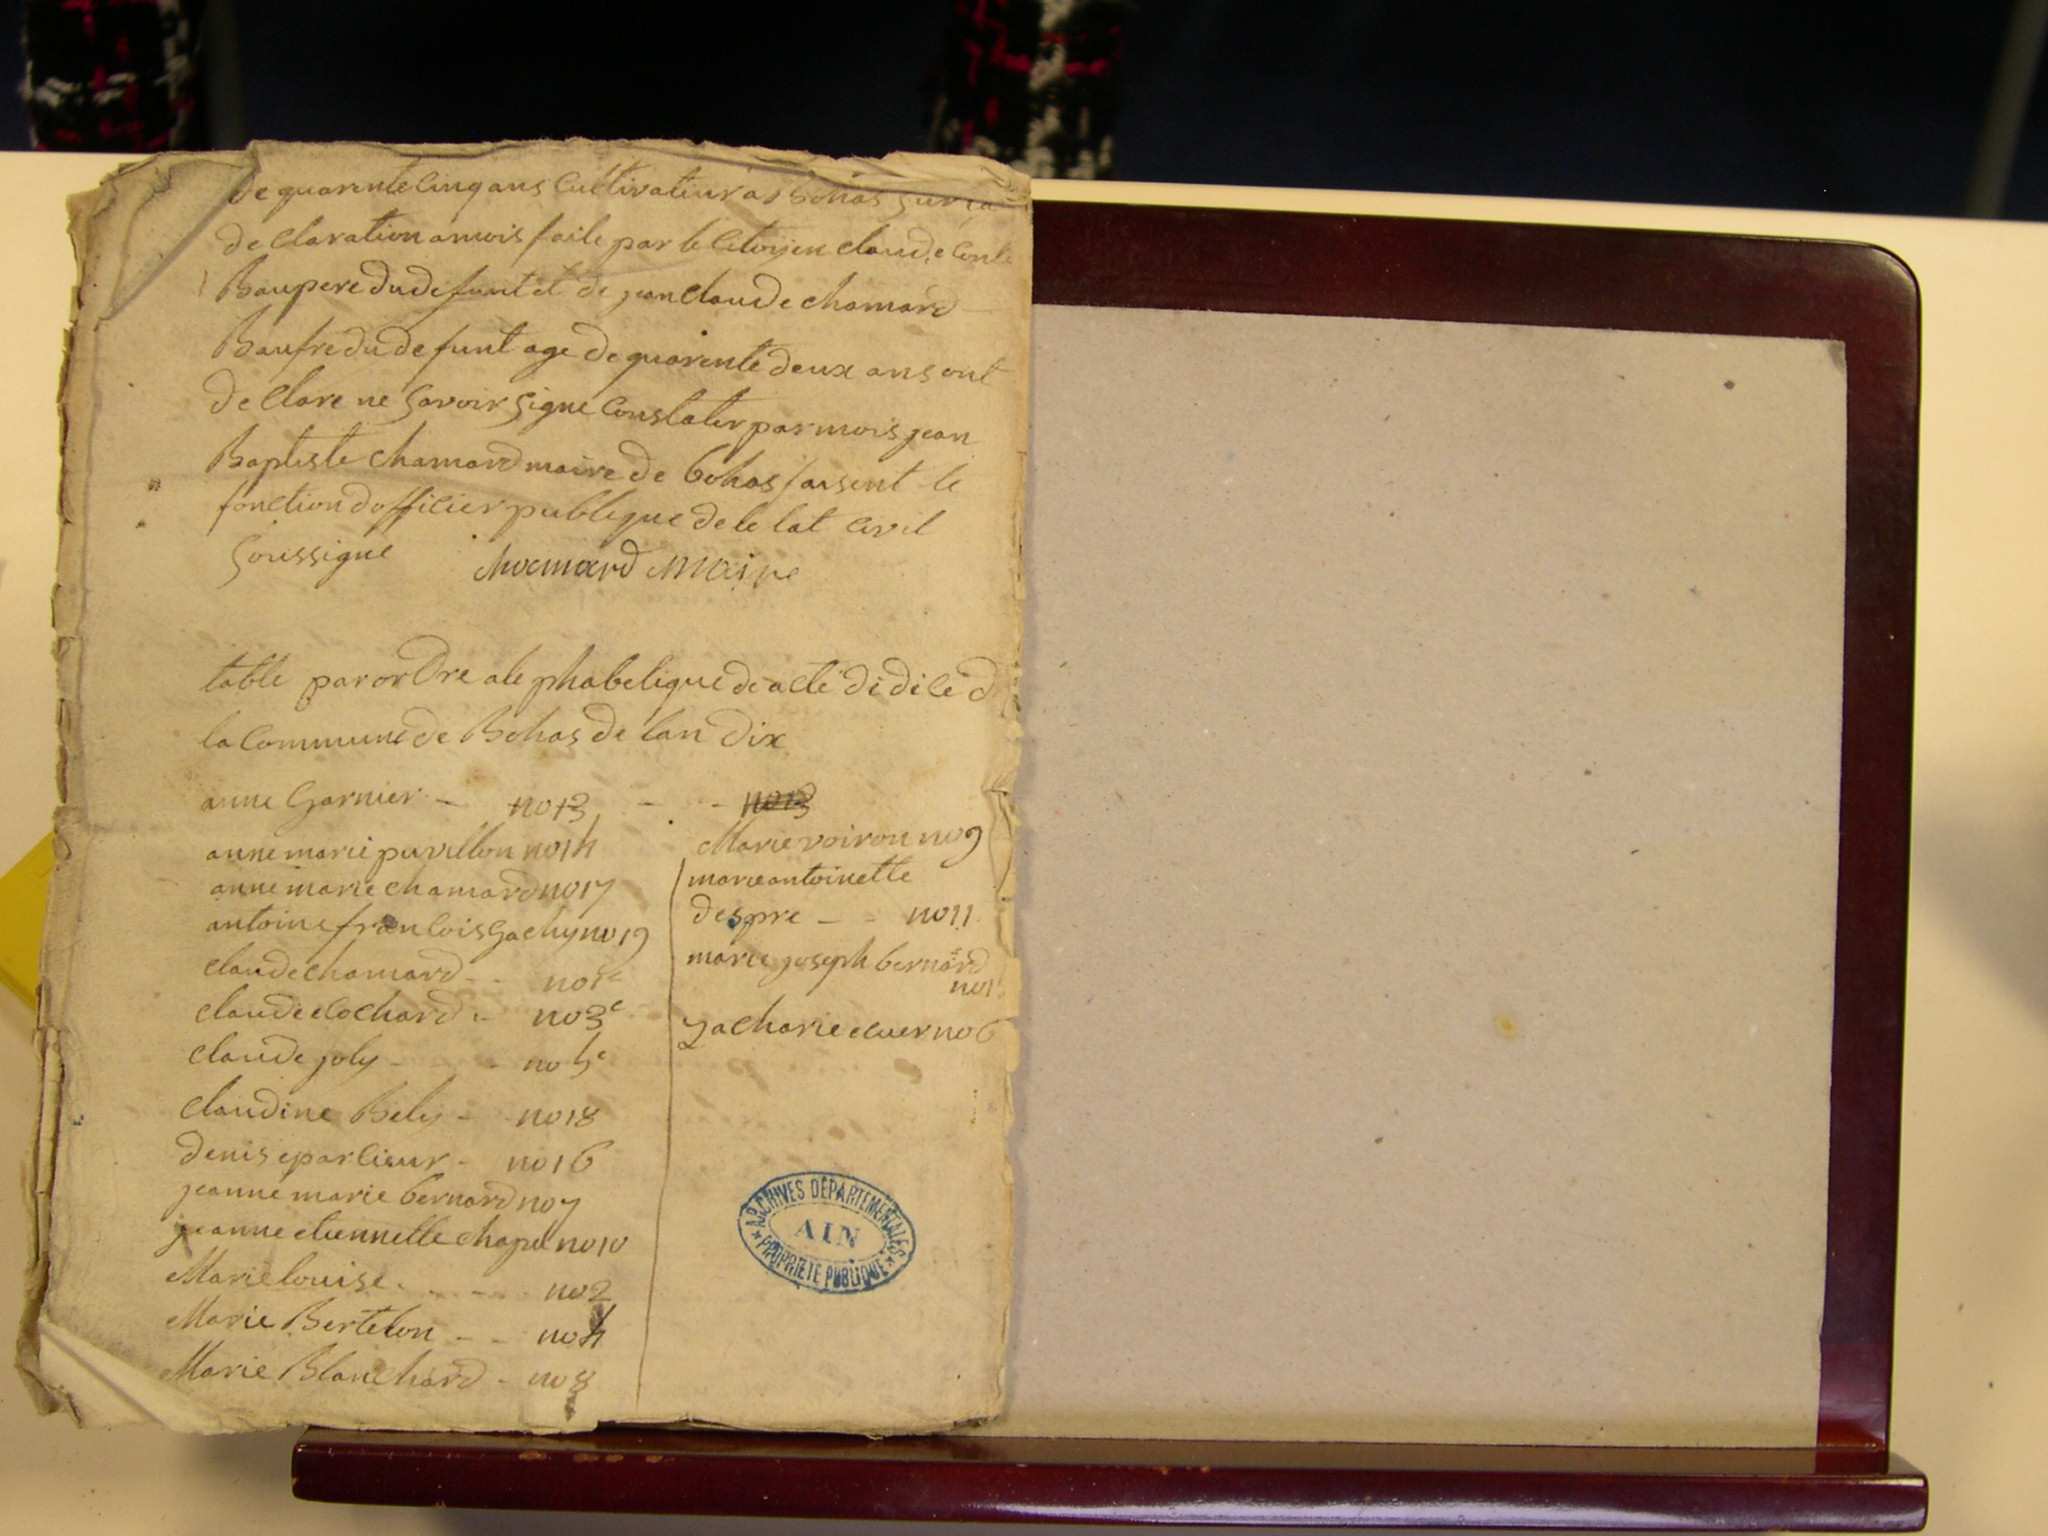 de quarente cinq ans cultivatiur a Bohas sur la
declaration a mois faite par le citoyen claude
Baupere du defunt et de jean claude chamard
Baufre du defunt age de quarente deux ans ont
declare ne savoir signe constater par mois jean
Baptiste chamard maire de bohas faisent le
fonction dofficier publique de le tat civil
soussigne chamard maire
table par ordre alephabetique de acte di dice d
la commune de Bohas de lan dix
anne Garnier no 13 no 13
anne marie puvillon no 14
anne marie chamard no 17
antoine francois Gachy no 19
claude chamard no 1e
claude cochard no 3e
claude joly no 5e
claudine Bely no 18
denise parlieur no 16
jeanne marie bernard no 7
jeanne etiennette chapel no 10
Marie louise no 2
Marie Bertelon no 4
Marie Blanchard no 8
Marie voiron no 9
marie antoinette
despre no 11
marie joseph bernard
zacharie cuer no 6
ARCHIVES DÉPARTEMENTALES
AIN
* PROPRIÉTÉ PUBLIQUE *